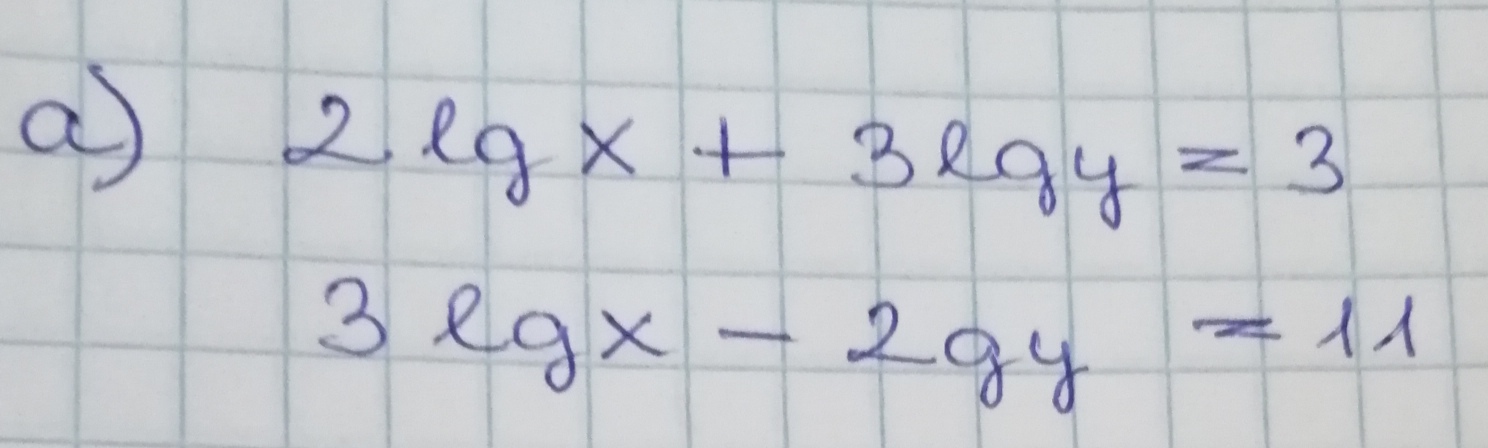 a) 2 lg x + 3 lg y = 3
3 lg x - 2 g y = 11